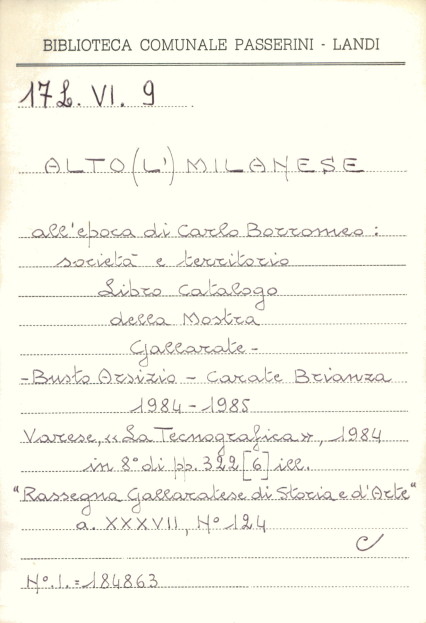 BIBLIOTECA COMUNALE PASSERINI - LANDI
17L. VI. 9
ALTO (L') MILANESE
all'epoca di Carlo Borromeo :
società e territorio
Libro Catalogo
della Mostra
Gallarate -
- Busto Arsizio - Carate Brianza
1984 - 1985
Varese, «La Tecnografica», 1984
in 8° di pp. 322 [6] ill.
"Rassegna Gallaratese di Storia e d'Arte"
a. XXXVII, N° 124
N°. I. = 184863